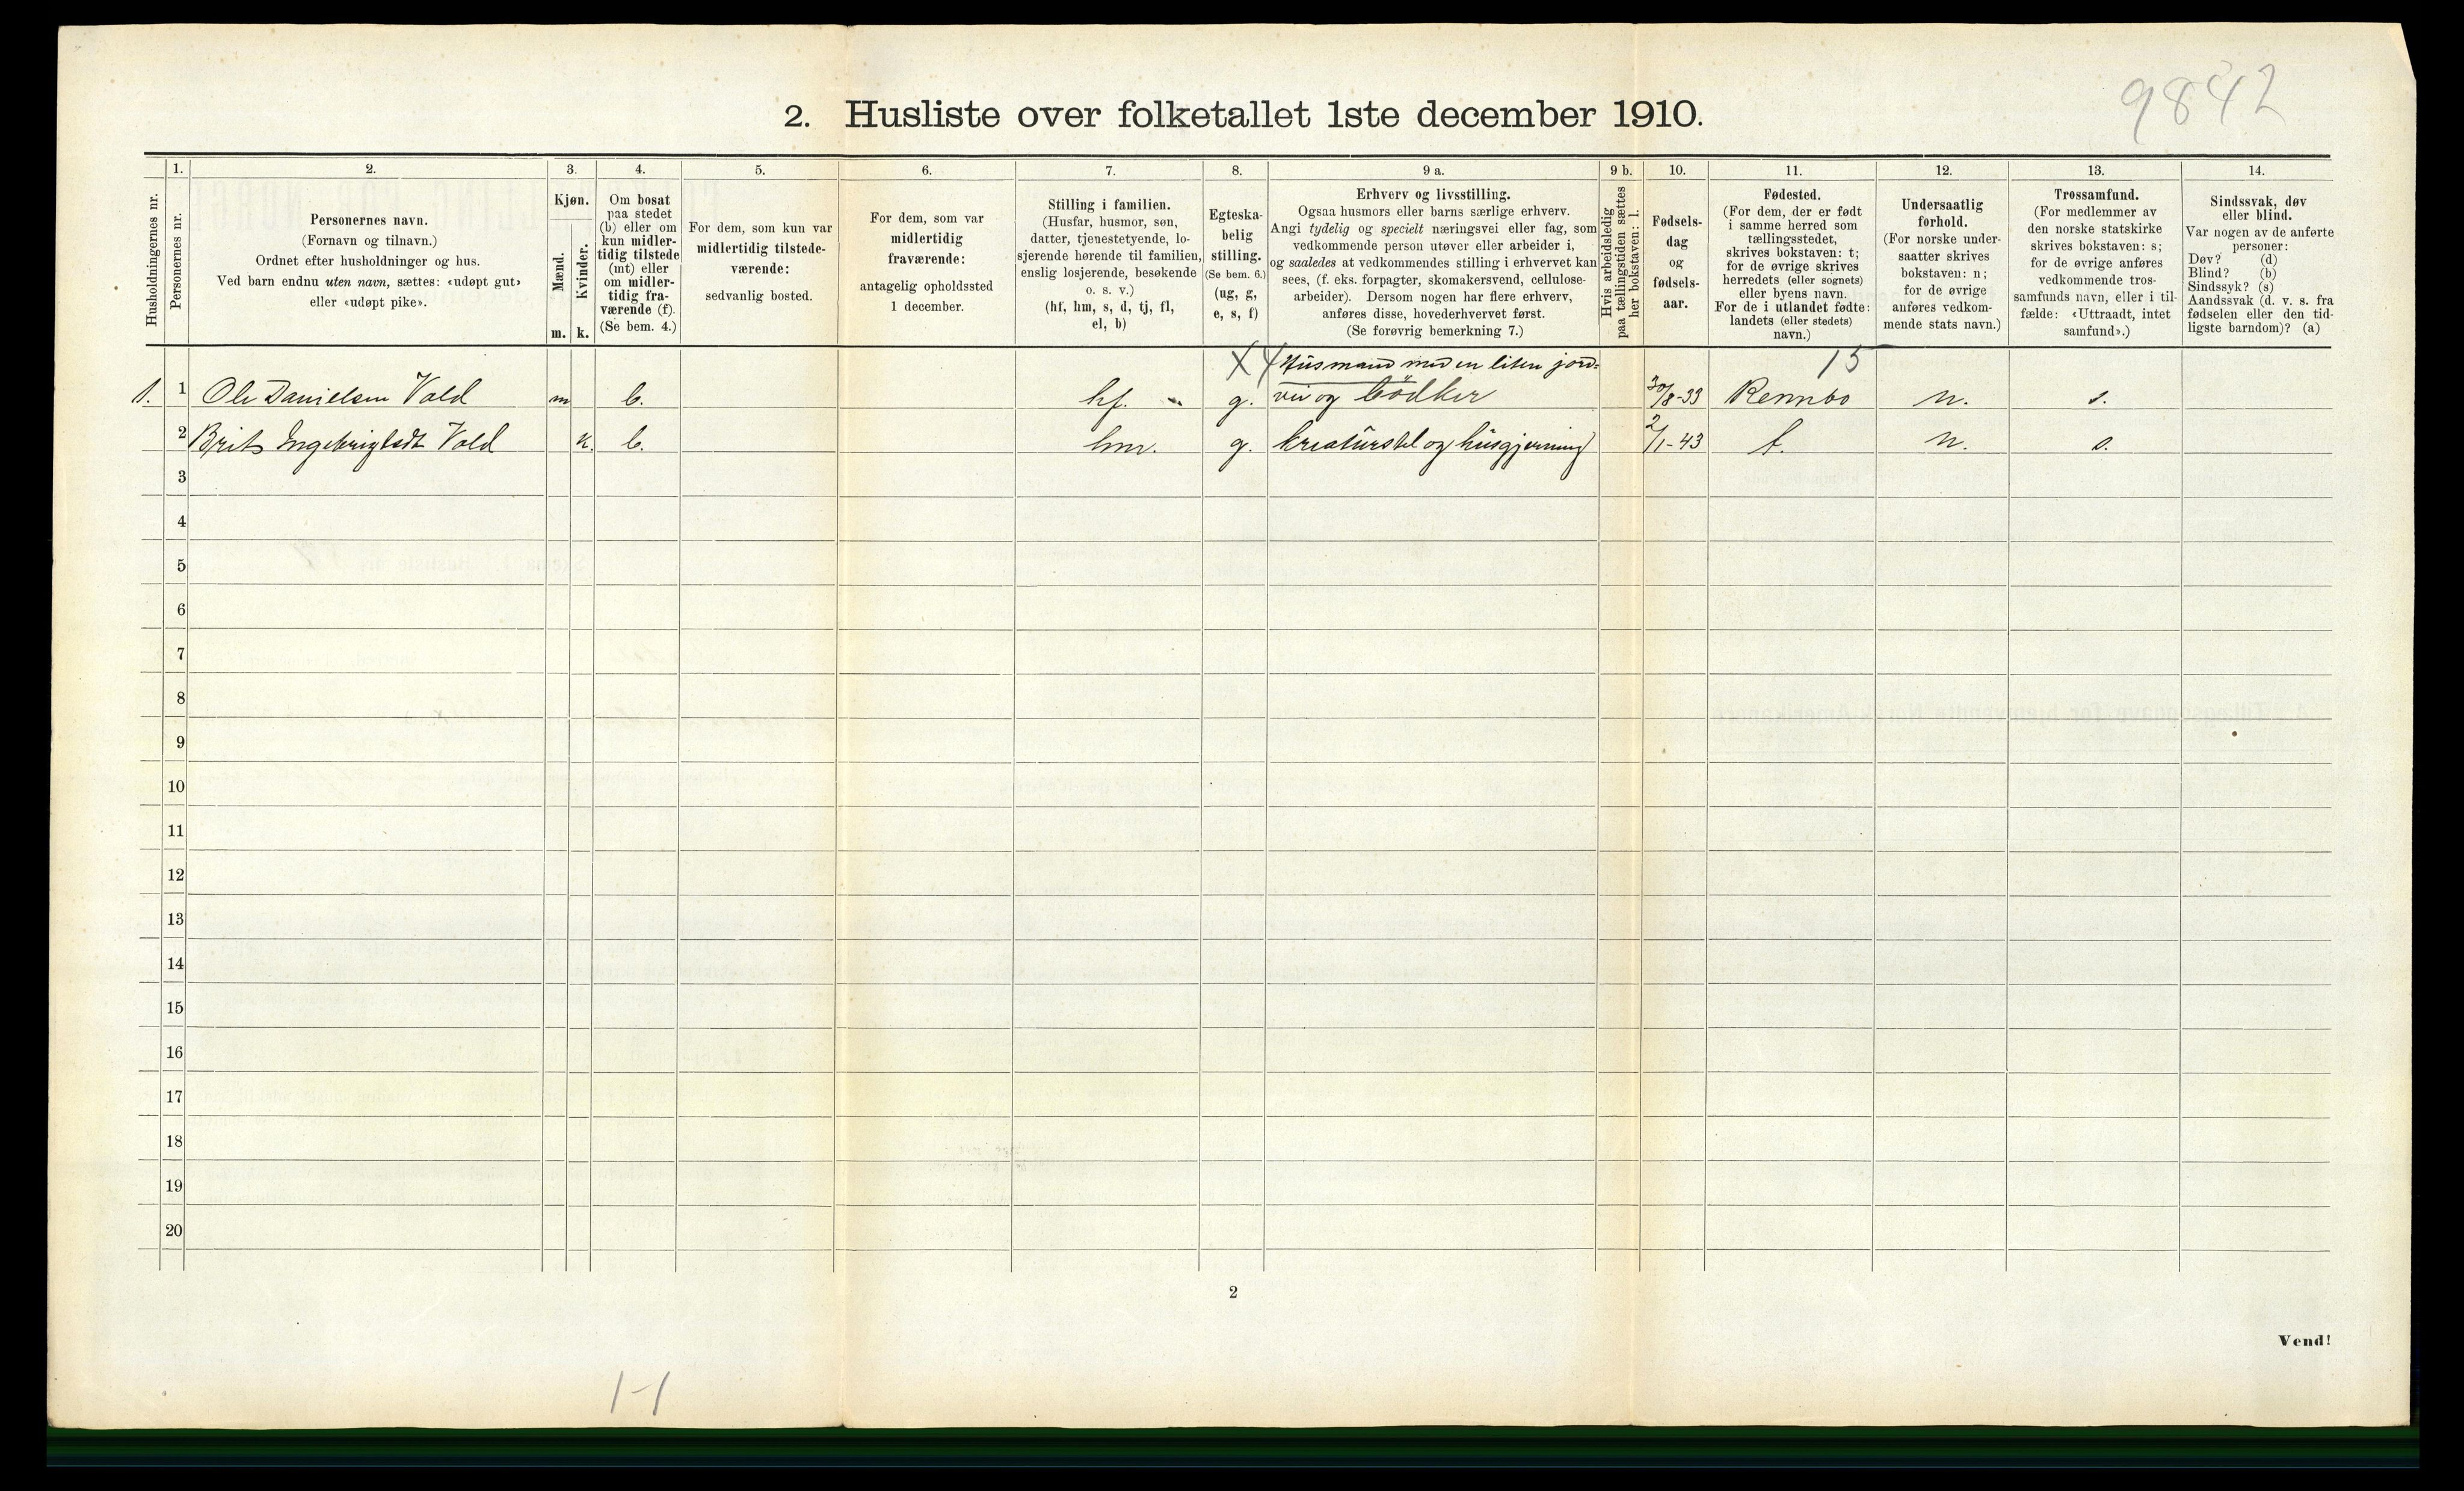 9842
2. Husliste over folketallet 1ste december 1910.
Husholdningernes nr.
1.
Personernes nr.
2.
Personernes navn.
(Fornavn og tilnavn.)
Ordnet efter husholdninger og hus.
Ved barn endnu uten navn, sættes: «udøpt gut»
eller «udøpt pike».
3.
Kjøn.
Mænd.
Kvinder.
m. k.
4.
Om bosat
paa stedet
(b) eller om
kun midler-
tidig tilstede
(mt) eller
om midler-
tidig fra-
værende (f).
(Se bem. 4.)
5.
For dem, som kun var
midlertidig tilstede-
værende:
sedvanlig bosted.
6.
For dem, som var
midlertidig
fraværende:
antagelig opholdssted
1 december.
7.
Stilling i familien.
(Husfar, husmor, søn,
datter, tjenestetyende, lo-
sjerende hørende til familien,
enslig losjerende, besøkende
o. s. v.)
(hf, hm, s, d, tj, fl,
el, b)
8.
Egteska-
belig
stilling.
(Se bem. 6.)
(ug, g,
e, s, f)
9 a.
Erhverv og livsstilling.
Ogsaa husmors eller barns særlige erhverv.
Angi tydelig og specielt næringsvei eller fag, som
vedkommende person utøver eller arbeider i,
og saaledes at vedkommendes stilling i erhvervet kan
sees, (f. eks. forpagter, skomakersvend, cellulose-
arbeider). Dersom nogen har flere erhverv,
anføres disse, hovederhvervet først.
(Se forøvrig bemerkning 7.)
9 b.
Hvis arbeidsledig
paa tællingstiden sættes
her bokstaven: l.
10.
Fødsels-
dag
og
fødsels-
aar.
11.
Fødested.
(For dem, der er født
i samme herred som
tællingsstedet,
skrives bokstaven: t;
for de øvrige skrives
herredets (eller sognets)
eller byens navn.
For de i utlandet fødte:
landets (eller stedets)
navn.)
12.
Undersaatlig
forhold.
(For norske under-
saatter skrives
bokstaven: n;
for de øvrige
anføres vedkom-
mende stats navn.)
13.
Trossamfund.
(For medlemmer av
den norske statskirke
skrives bokstaven: s;
for de øvrige anføres
vedkommende tros-
samfunds navn, eller i til-
fælde: «Uttraadt, intet
samfund».)
14.
Sindssvak, døv
eller blind.
Var nogen av de anførte
personer:
Døv? (d)
Blind? (b)
Sindssyk? (s)
Aandssvak (d. v. s. fra
fødselen eller den tid-
ligste barndom)? (a)
X 4 Husmand med en liten jord- 15
1. 1 Ole Danielsen Vold m b. hf. g. vei og bödker 30/8-33 Rennbo n. s.
2 Brit Ingebrigtsdt Vold k. b. hm. g. kreaturstel og husgjerning 2/1-43 t. n. s.
3
4
5
6
7
8
9
10
11
12
13
14
15
16
17
18
19
20
2
Vend!
1-1